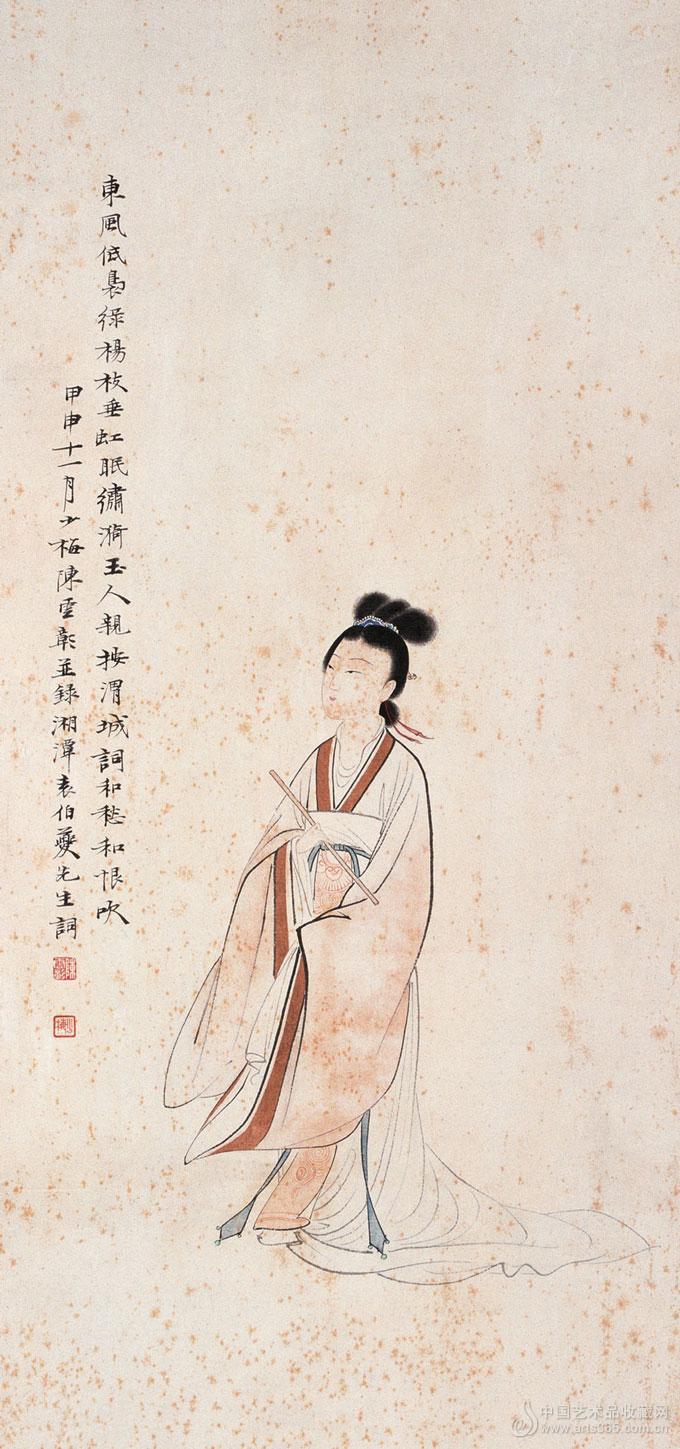 東風低裊綠楊枝垂虹眠繡漪玉人親按渭城詞和愁和恨吹
甲申十一月少梅陳雲彰並錄湘潭袁伯夔先生詞
中国艺术品收藏网
www.arts365.com.cn